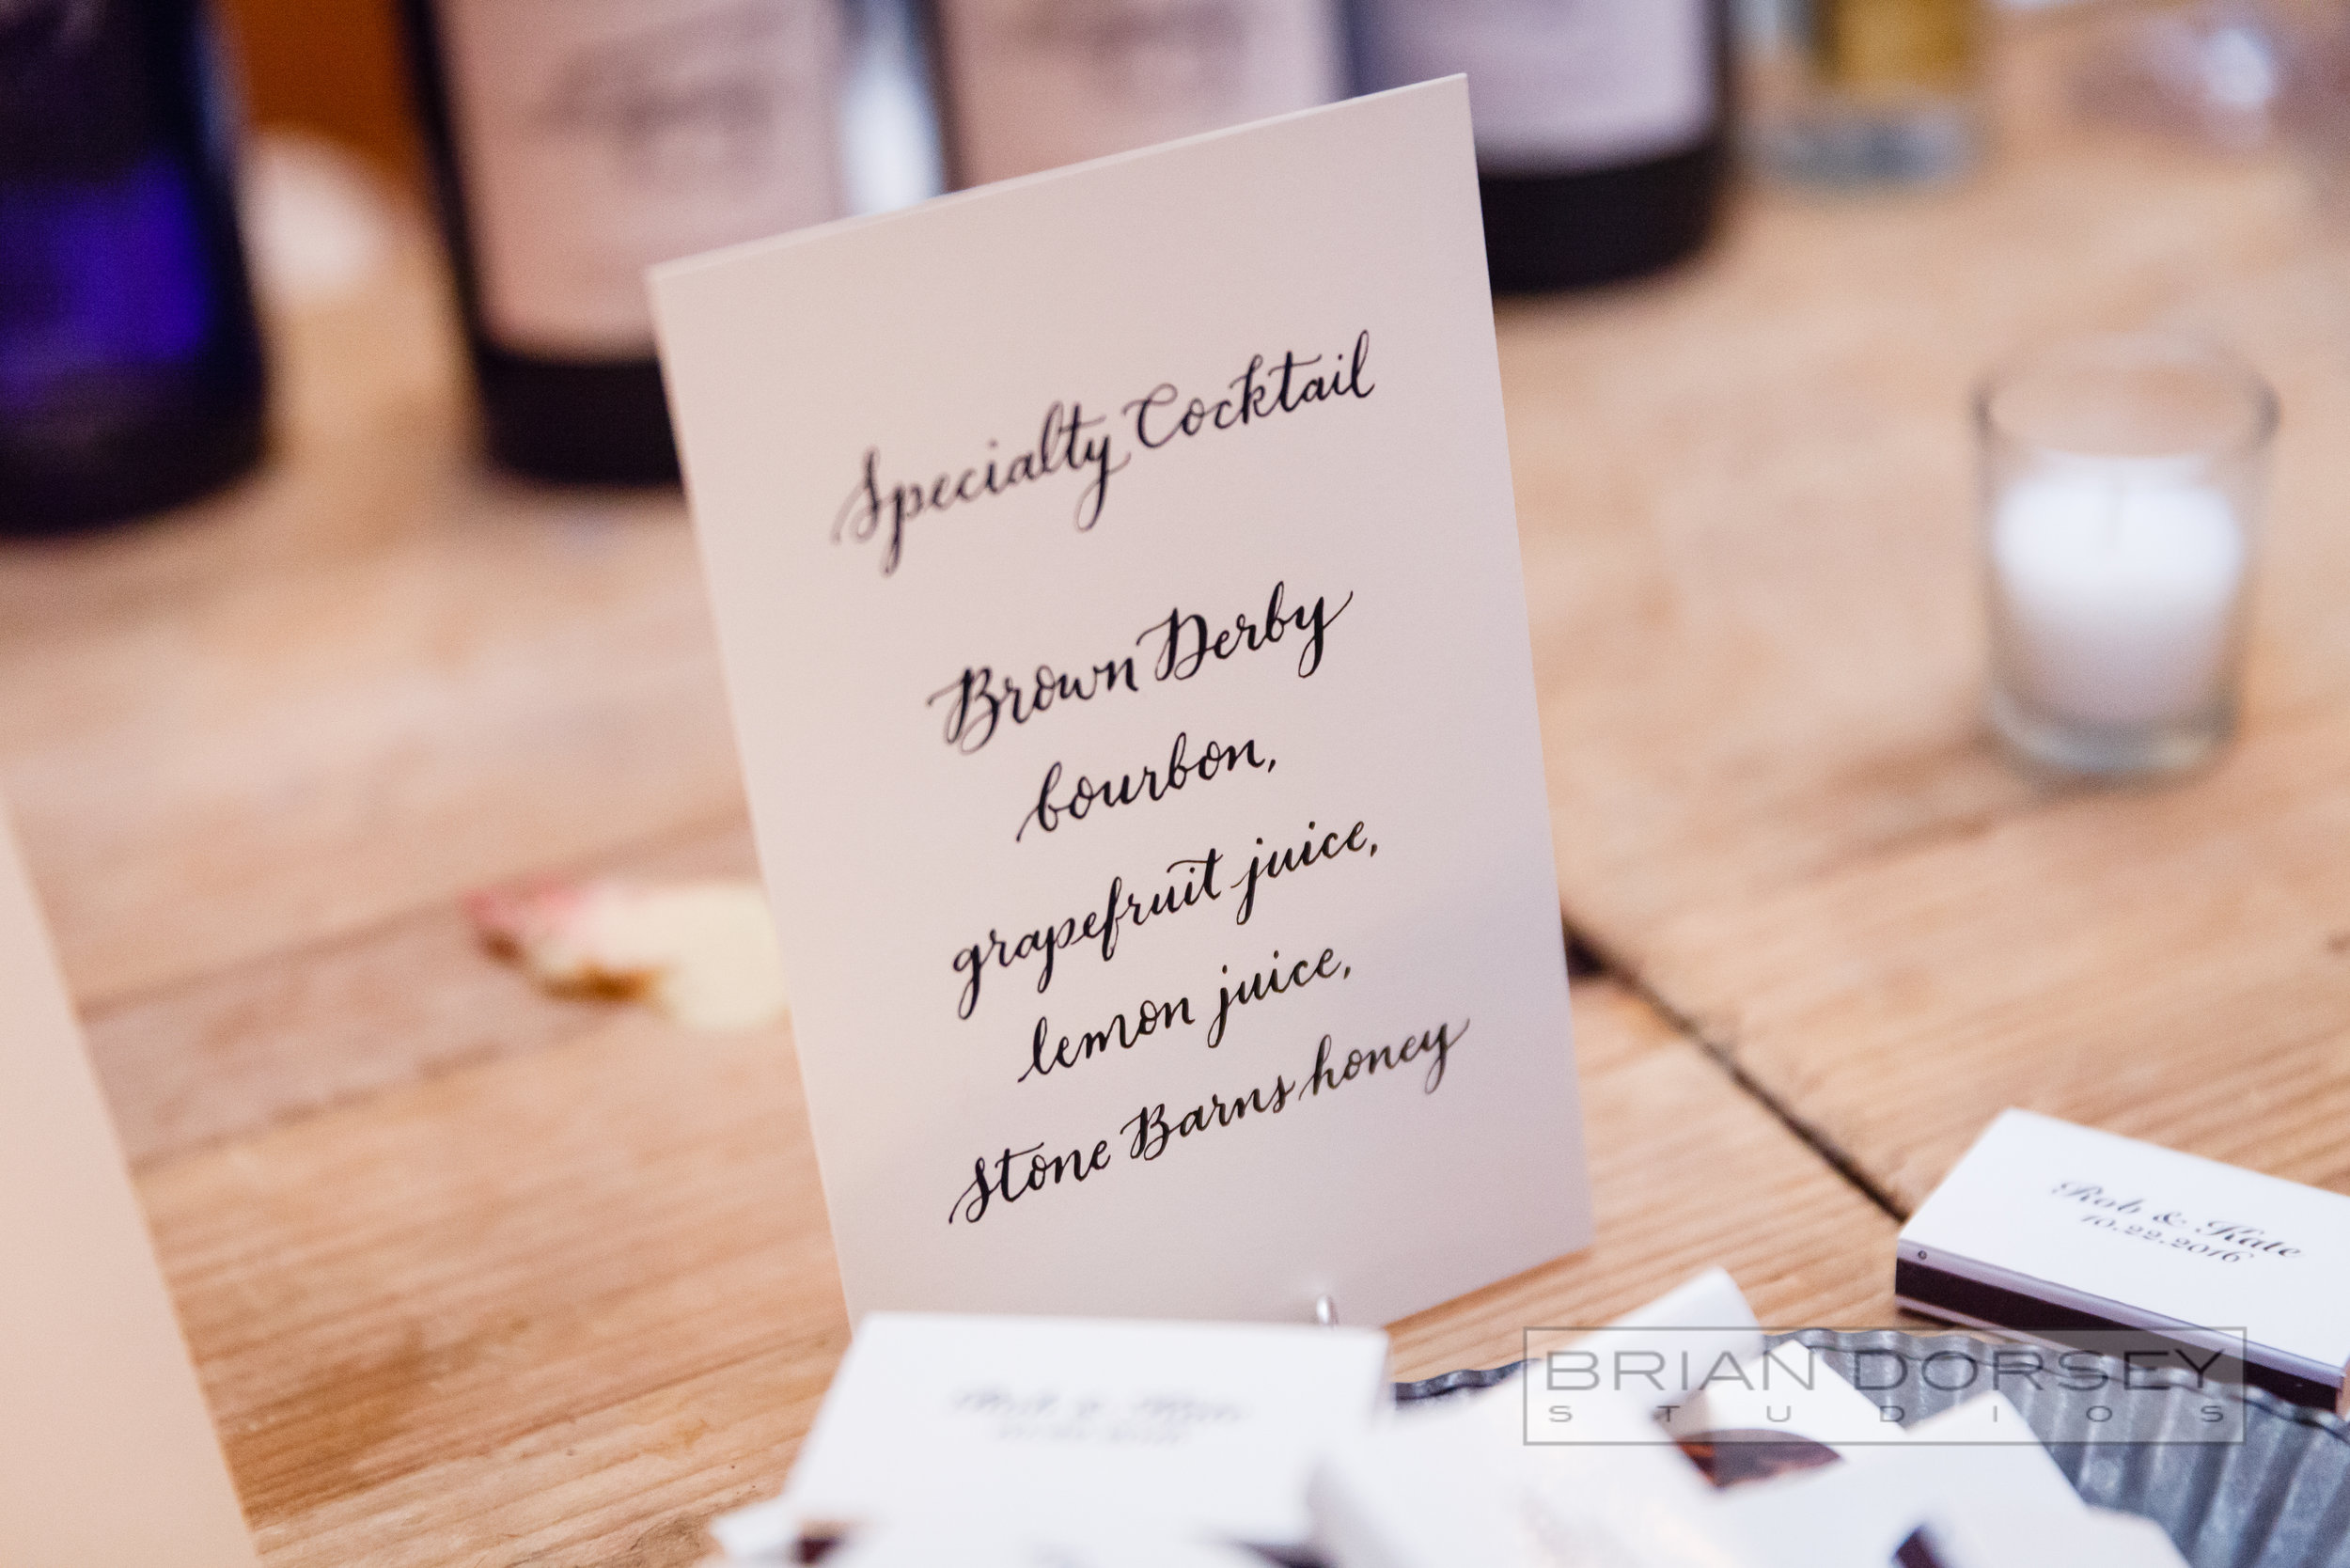 Specialty Cocktail
Brown Derby
bourbon,
grapefruit juice,
lemon juice,
Stone Barns honey
Rob & Kate
10.22.2016
BRIAN DORSEY
STUDIOS